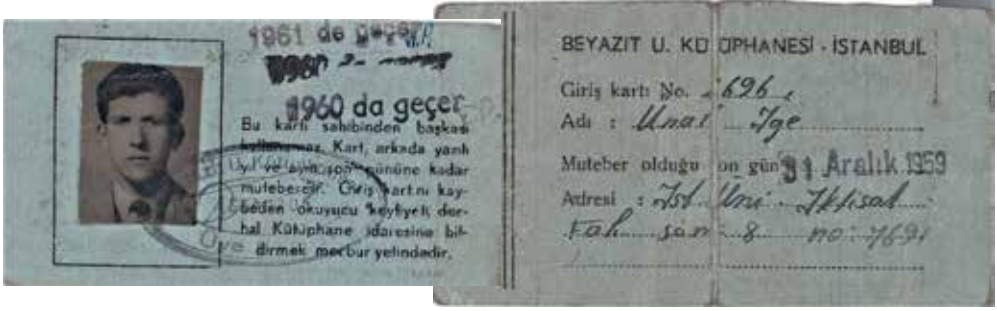 1961 de geçer
1960
1960 da geçer
Bu kartı sahibinden başkası
kullanamaz. Kart, arkada yazılı
yıl ve ayın son gününe kadar
muteberdir. Giriş kartını kay-
beden okuyucu keyfiyeti der-
hal Kütüphane idaresine bil-
dirmek mecburiyetindedir.
BEYAZIT U. KÜTÜPHANESİ - İSTANBUL
Giriş kartı No. 696
Adı : Ünal Ige
Muteber olduğu son gün 31 Aralık 1959
Adresi : İst. Üni. İktisat
Fak. son. 8 no: 7691